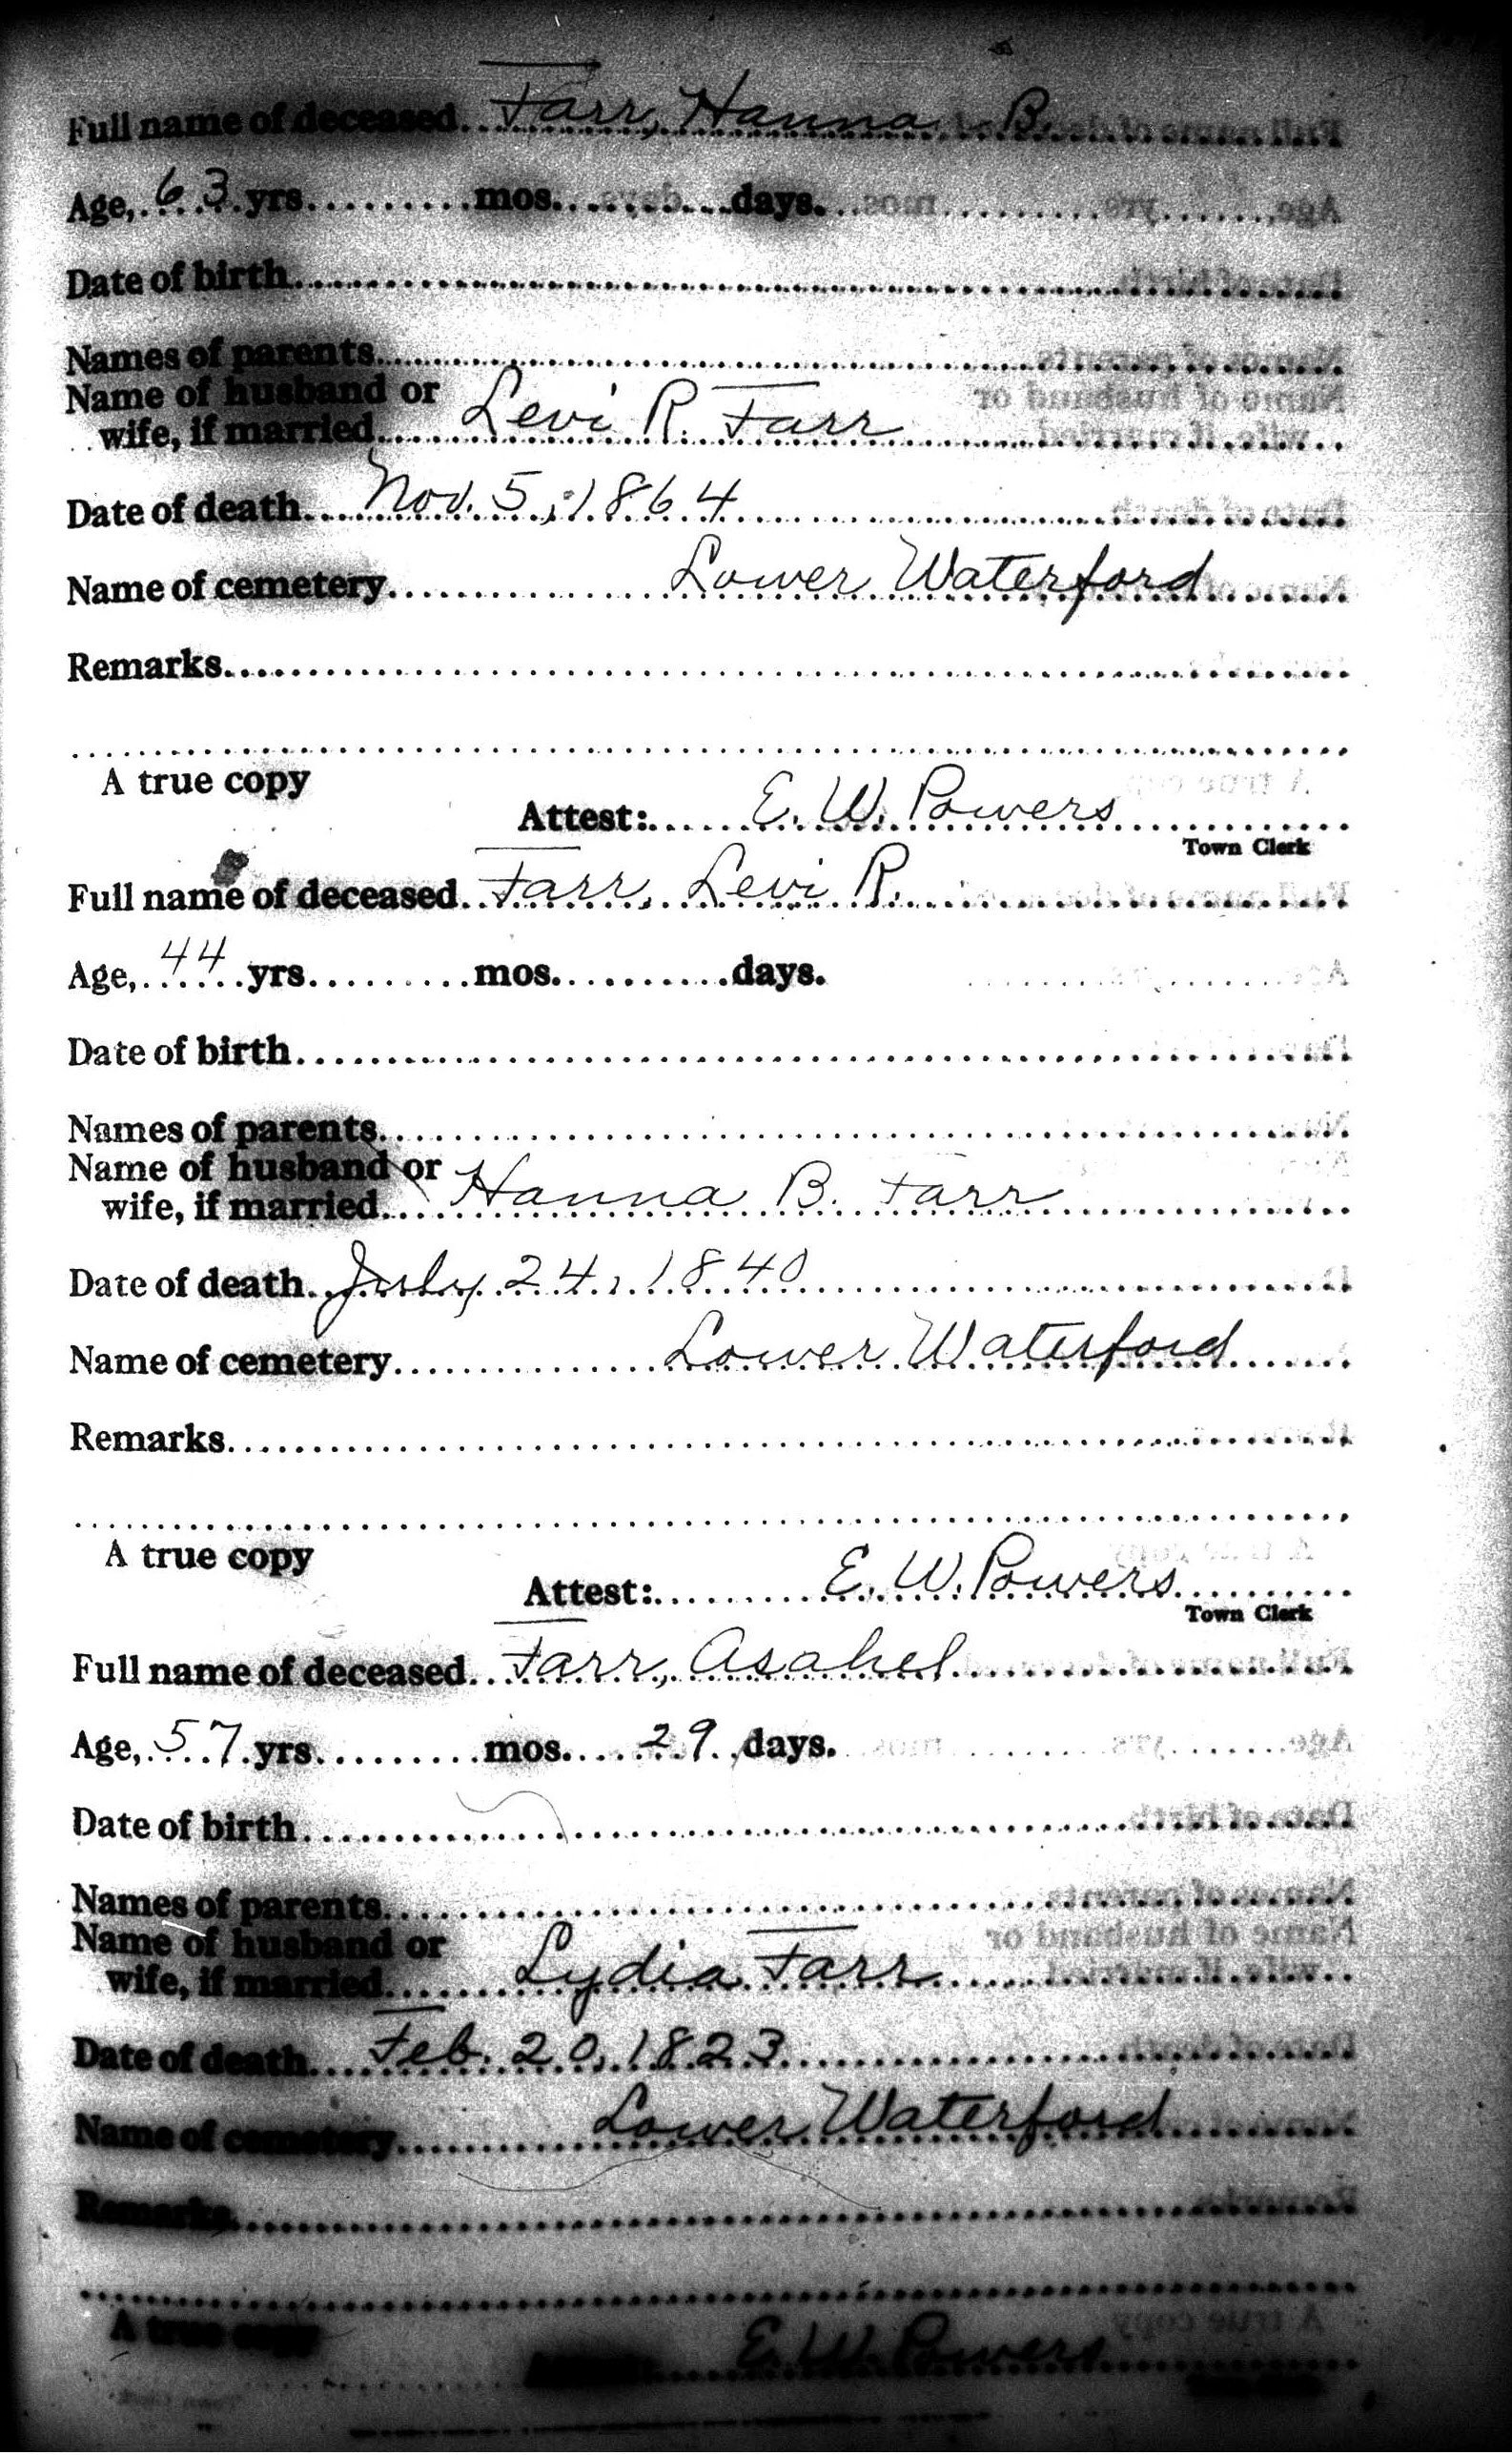 Full name of deceased Farr, Hanna B.
Age, 63 yrs. mos. days.
Date of birth
Names of parents
Name of husband or
wife, if married Levi R. Farr
Date of death Nov. 5, 1864
Name of cemetery Lower Waterford
Remarks
A true copy
Attest: E. W. Powers
Town Clerk
Full name of deceased Farr, Levi R.
Age, 44 yrs. mos. days.
Date of birth
Names of parents
Name of husband or
wife, if married Hanna B. Farr
Date of death July 24, 1840
Name of cemetery Lower Waterford
Remarks
A true copy
Attest: E. W. Powers
Town Clerk
Full name of deceased Farr, Asahel
Age, 57 yrs. mos. 29 days.
Date of birth
Names of parents
Name of husband or
wife, if married Lydia Farr
Date of death Feb. 20, 1823
Name of cemetery Lower Waterford
Remarks
A true copy
E. W. Powers